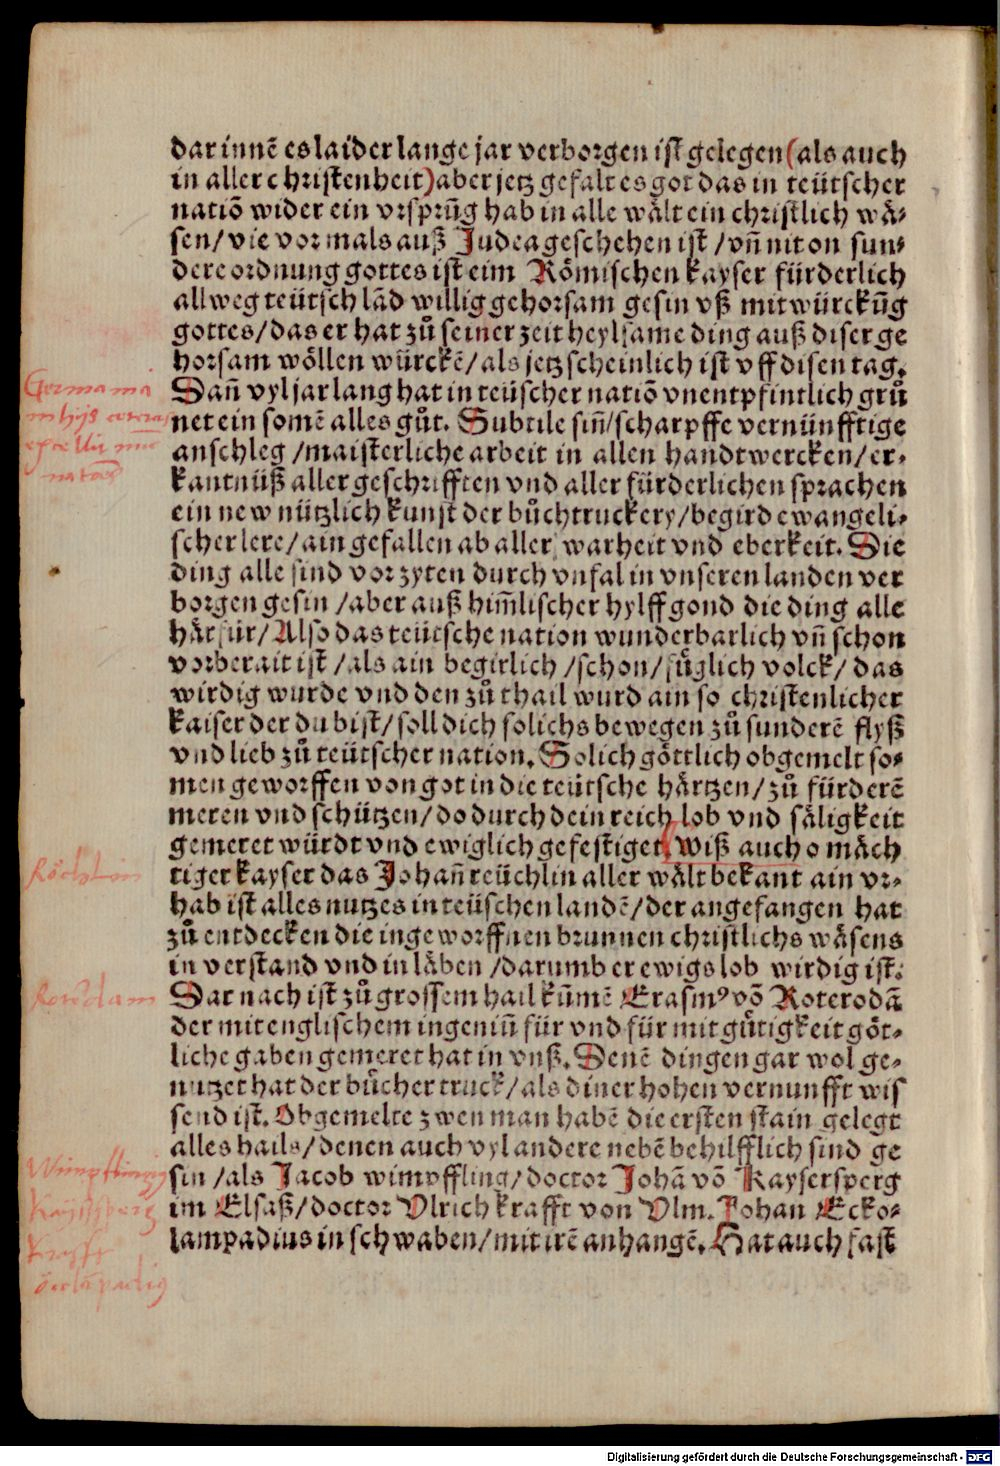 dar innē es laider lange jar verborgen ist gelegen (als auch
in aller christenheit) aber jetz gefalt es got das in teütscher
natiō wider ein vrsprūg hab in alle wält ein christlich wä-
sen / vie vormals auß Judea geschehen ist / vn̄ nit on sun-
dere ordnung gottes ist eim Römischen kayser fürderlich
allweg teütsch lād willig gehorsam gesin vß mitwürckūg
gottes / das er hat zů seiner zeit heylsame ding auß diser ge
horsam wöllen würckē / als jetz scheinlich ist vff disen tag.
Dan̄ vyl jar lang hat in teüscher natiō vnentpfintlich grů
net ein somē alles gůt. Subtile sin̄ / scharpffe vernünfftige
anschleg / maisterliche arbeit in allen handtwercken / er-
kantnüß aller geschrifften vnd aller fürderlichen sprachen
ein new nützlich kunst der bůchtruckery / begird ewangeli-
scher lere / ain gefallen ab aller warheit vnd eberkeit. Die
ding alle sind vor zyten durch vnfal in vnseren landen ver
borgen gesin / aber auß him̄lischer hylff gond die ding alle
härfür / Also das teütsche nation wunderbarlich vn̄ schon
vorberait ist / als ain begirlich / schon / fůglich volck / das
wirdig wurde vnd den zů thail wurd ain so christenlicher
kaiser der du bist / soll dich solichs bewegen zů sunderē flyß
vnd lieb zů teütscher nation. Solich göttlich obgemelt so-
men geworffen von got in die teütsche härtzen / zů fürderē
meren vnd schützen / do durch dein reich lob vnd säligkeit
gemeret würdt vnd ewiglich gefestiget. Wiß auch o mäch
tiger kayser das Johan̄ reüchlin aller wält bekant ain vr-
hab ist alles nutzes in teüschen landē / der angefangen hat
zů entdecken die ingeworffnen brunnen christlichs wäsens
in verstand vnd in läben / darumb er ewigs lob wirdig ist.
Dar nach ist zů grossem hail kūmē Erasmꝰ vō Roterodā
der mit englischem ingeniū für vnd für mit gůtigkeit göt-
liche gaben gemeret hat in vnß. Denē dingen gar wol ge-
nutzet hat der bůcher truck / als diner hohen vernunfft wis
send ist. Obgemelte zwen man habē die ersten stain gelegt
alles hails / denen auch vyl andere nebē behilfflich sind ge
sin / als Jacob wimpffling / doctor Johā vō Kaysersperg
im Elsaß / doctor Vlrich krafft von Vlm. Johan Ecko-
lampadius in schwaben / mit irē anhangē. Hat auch fast
Germania
in hijs
Röchlin
Roterdam
Wimpflingij
Kayserßperg
Krafft
Digitalisierung gefördert durch die Deutsche Forschungsgemeinschaft - DFG